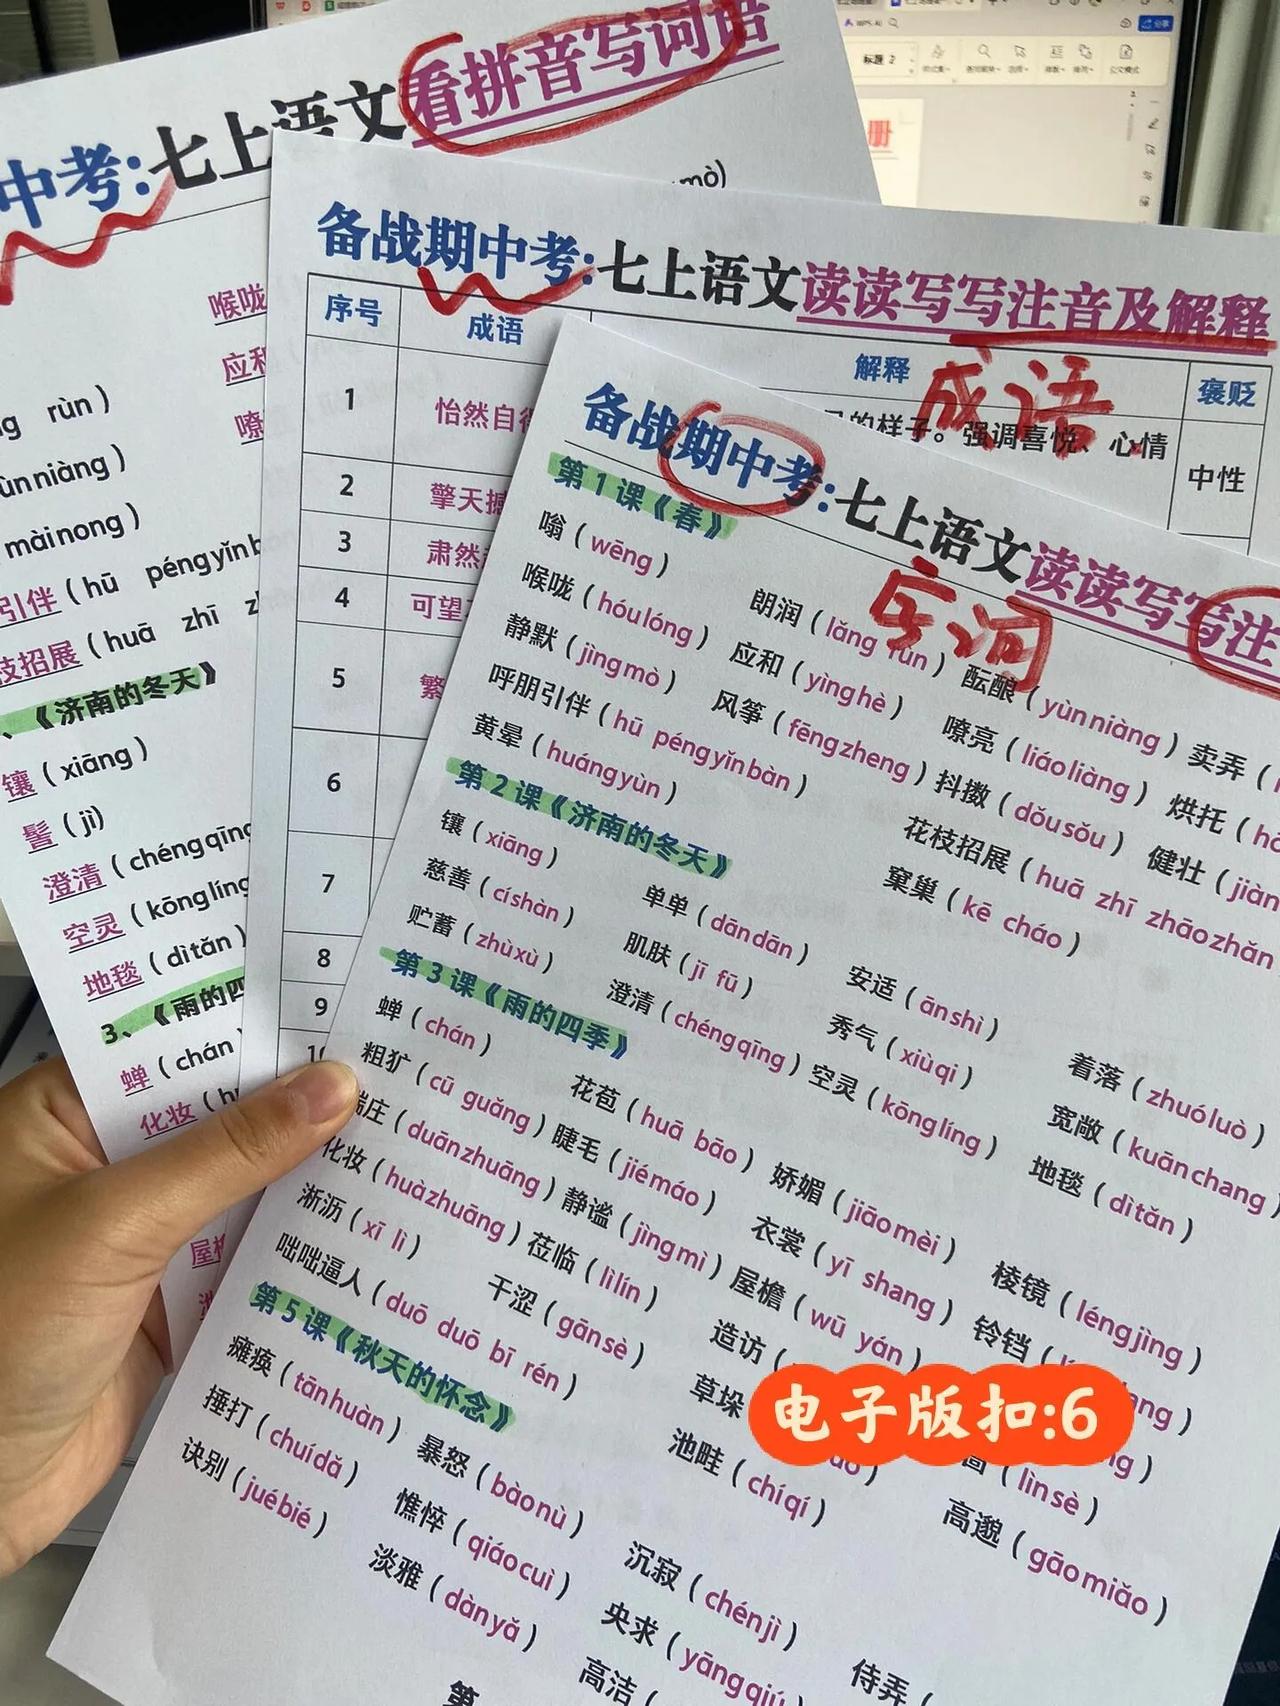 中考:七上语文看拼音写词语
mò)
喉咙
rùn)
niàng)
màinong)
引伴(hū péngyǐnb
枝招展(huā zhī
《济南的冬天》
镶(xiāng)
髻(jì)
澄清(chéngqīng
空灵(kōnglíng
地毯(dìtǎn)
3、《雨的四
蝉(chán
化妆(h
备战期中考:七上语文读读写写注音及解释
成语
序号 成语 解释 褒贬
1 怡然自得 的样子。强调喜悦、心情 中性
2 擎天撼
3 肃然
4 可望
5 繁
6
7
8
9
10
备战期中考:七上语文读读写写注
字词
第1课《春》
嗡(wēng) 朗润(lǎng rùn) 酝酿(yùnniàng) 卖弄(
喉咙(hóulóng) 应和(yìnghè) 嘹亮(liáoliàng) 烘托(hó
静默(jìngmò) 风筝(fēngzheng) 抖擞(dǒusǒu) 健壮(jiàn
呼朋引伴(hū péngyǐnbàn) 花枝招展(huā zhī zhāozhǎn
黄晕(huángyùn) 窠巢(kē cháo)
第2课《济南的冬天》
镶(xiāng) 单单(dāndān) 安适(ānshì) 着落(zhuóluò)
慈善(císhàn) 肌肤(jī fū) 秀气(xiùqi) 宽敞(kuānchang)
贮蓄(zhùxù) 澄清(chéngqīng) 空灵(kōnglíng) 地毯(dìtǎn)
第3课《雨的四季》
蝉(chán) 花苞(huā bāo) 娇媚(jiāomèi) 棱镜(léngjìng)
粗犷(cū guǎng) 睫毛(jiémáo) 衣裳(yī shang) 铃铛(
庄(duānzhuāng) 静谧(jìngmì) 屋檐(wū yán)
化妆(huàzhuāng) 莅临(lìlín) 造访(
淅沥(xī lì) 干涩(gānsè) 草垛
(lìnsè)
咄咄逼人(duō duō bī rén) 池畦(chíqí) 高邈(gāomiǎo)
第5课《秋天的怀念》
瘫痪(tānhuàn) 暴怒(bàonù) 沉寂(chénjì) 侍弄(
捶打(chuídǎ) 憔悴(qiáocuì) 央求(yāngqiú
诀别(juébié) 淡雅(dànyǎ) 高洁(
第
电子版扣:6